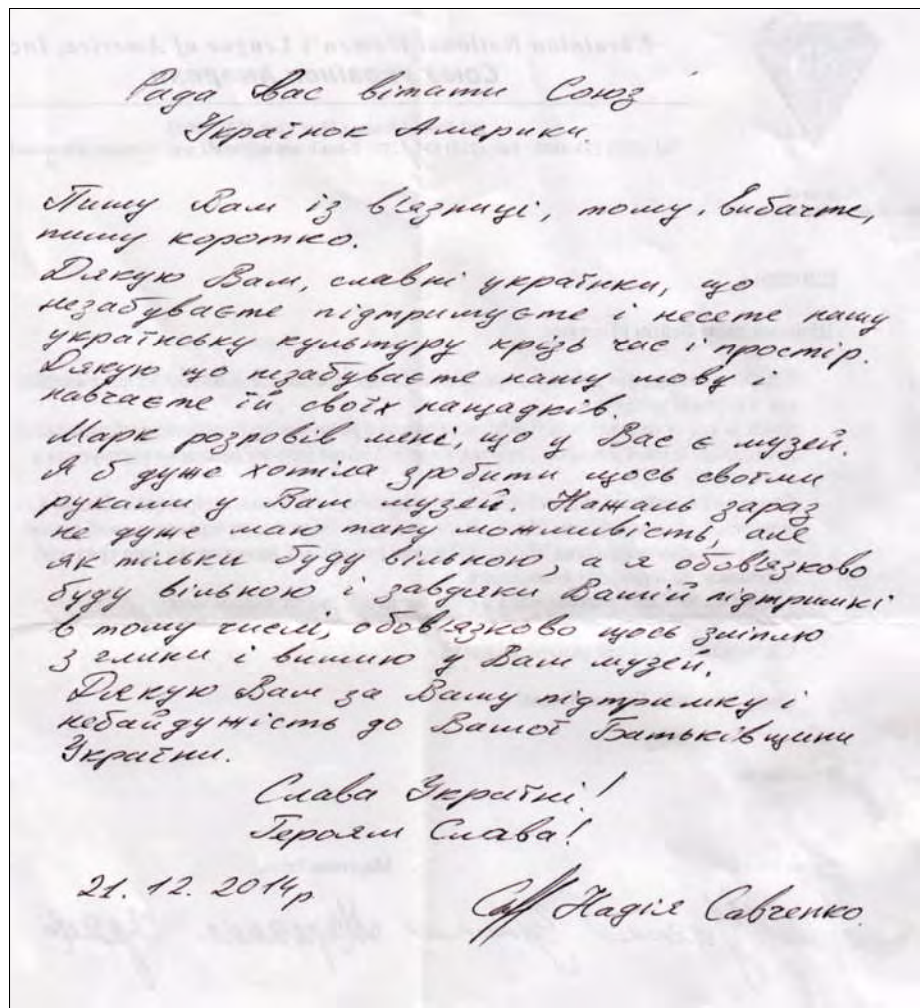 Рада Вас вітати Союз
Українок Америки.
Пишу Вам із в'язниці, тому, вибачте,
пишу коротко.
Дякую Вам, славні українки, що
незабуваєте підтримуєте і несете нашу
українську культуру крізь час і простір.
Дякую що незабуваєте нашу мову і
навчаєте їй своїх нащадків.
Марк розповів мені, що у Вас є музей.
Я б дуже хотіла зробити щось своїми
руками у Вам музей. Нажаль зараз
не дуже маю таку можливість, але
як тільки буду вільною, а я обов'язково
буду вільною і завдяки Вашій підтримкі
в тому числі, обов'язково щось зліплю
з глини і вишию у Вам музей.
Дякую Вам за Вашу підтримку і
небайдужість до Вашої Батьківщини
України.
Слава Україні!
Героям Слава!
21. 12. 2014р
Надія Савченко